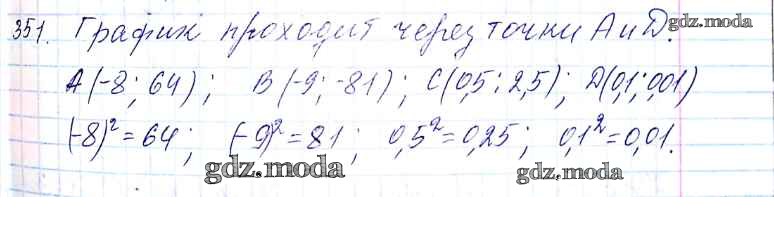 351. График проходит через точки А и D.
gdz.moda
A(-8; 64); B(-9; -81); C(0,5; 2,5); D(0,1; 0,01)
(-8)²=64; (-9)²=81; 0,5²=0,25; 0,1²=0,01.
gdz.moda gdz.moda